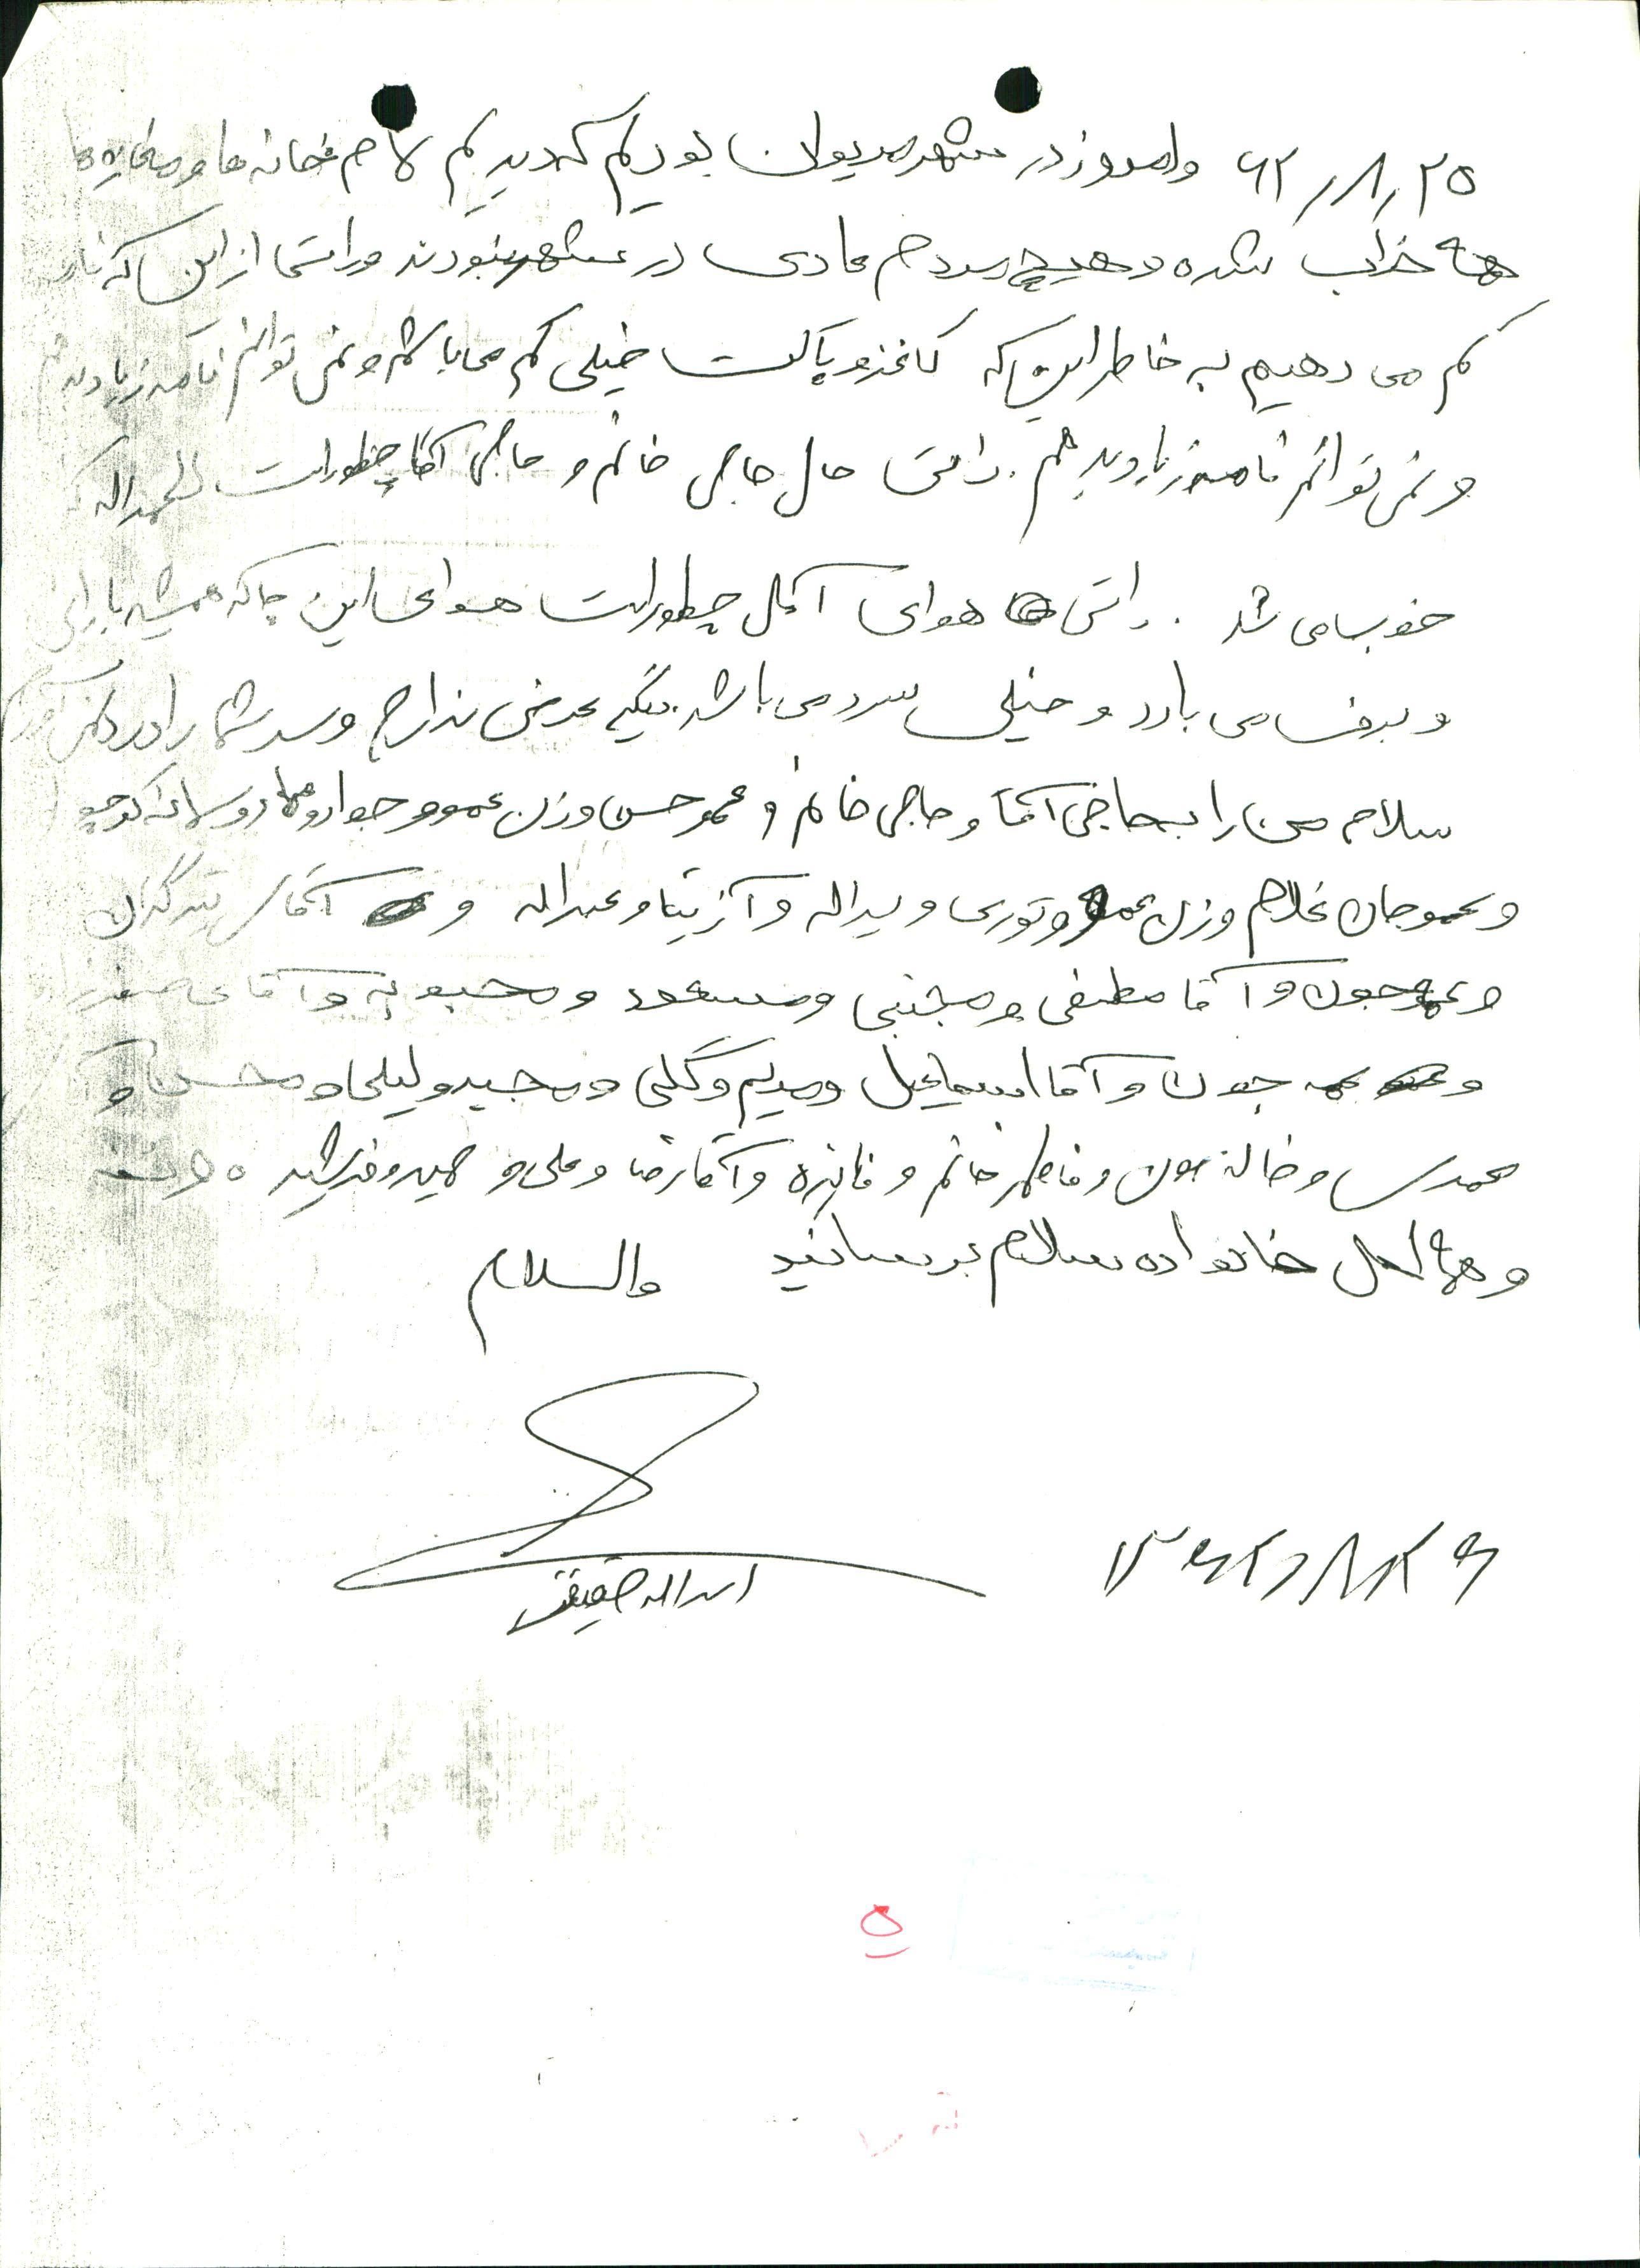 ۶۲٫۸٫۲۵ و امروز در شهر مریوان بودیم که دیدیم تمام خانه ها و مغازه ها
همه خراب شده و هیچ مردم عادی در شهر نبودند و راستی از این که نامه
کم می دهیم به خاطر این که کاغذ و پاکت خیلی کم می باشد و نمی توانم نامه زیاد
و نمی توانم نامه زیاد بدهم . راستی حال حاجی خانم و حاجی آقا چطور است الحمداله که
خوب می باشد . راستی هوای آمل چطور است هوای این جا که همیشه بارانی
و برف می بارد و خیلی سرد می باشد. دیگر عرضی ندارم و سر شما را درد نمی آورم
سلام من را به حاجی آقا و حاجی خانم و عمو حسن و زن عمو و جواد و
و عموجان غلام و زن عمو و توری و یداله و آزیتا و عبداله و آقای
و عمه جون و آقا مطفی و مجتبی و مسعود و محبوبه و آقای صفدر
و عمه جون و آقا اسماعیل و مریم و گلی و مجید و لیلا و محسن و
محمد و خاله جون و فاطمه خانم و فائزه و آقا رضا و علی و حمید و فرشید
و همه اهل خانواده سلام برسانید والسلام
۱۳۶۲٫۸٫۲۶
اسداله حقیقی
۵